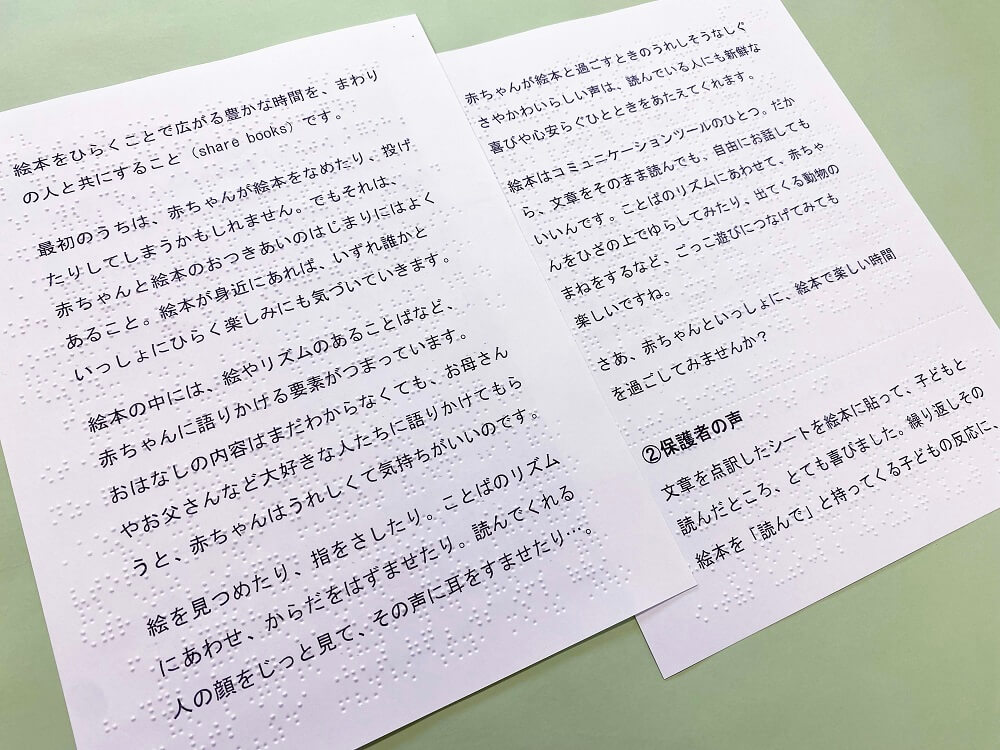 絵本をひらくことで広がる豊かな時間を、まわり
の人と共にすること（share books）です。
最初のうちは、赤ちゃんが絵本をなめたり、投げ
たりしてしまうかもしれません。でもそれは、
赤ちゃんと絵本のおつきあいのはじまりにはよく
あること。絵本が身近にあれば、いずれ誰かと
いっしょにひらく楽しみにも気づいていきます。
絵本の中には、絵やリズムのあることばなど、
赤ちゃんに語りかける要素がつまっています。
おはなしの内容はまだわからなくても、お母さん
やお父さんなど大好きな人たちに語りかけてもら
うと、赤ちゃんはうれしくて気持ちがいいのです。
絵を見つめたり、指をさしたり。ことばのリズム
にあわせ、からだをはずませたり。読んでくれる
人の顔をじっと見て、その声に耳をすませたり…。
赤ちゃんが絵本と過ごすときのうれしそうなしぐ
さやかわいらしい声は、読んでいる人にも新鮮な
喜びや心安らぐひとときをあたえてくれます。
絵本はコミュニケーションツールのひとつ。だか
ら、文章をそのまま読んでも、自由にお話しても
いいんです。ことばのリズムにあわせて、赤ちゃ
んをひざの上でゆらしてみたり、出てくる動物の
まねをするなど、ごっこ遊びにつなげてみても
楽しいですね。
さあ、赤ちゃんといっしょに、絵本で楽しい時間
を過ごしてみませんか？
②保護者の声
文章を点訳したシートを絵本に貼って、子どもと
読んだところ、とても喜びました。繰り返しその
絵本を「読んで」と持ってくる子どもの反応に、